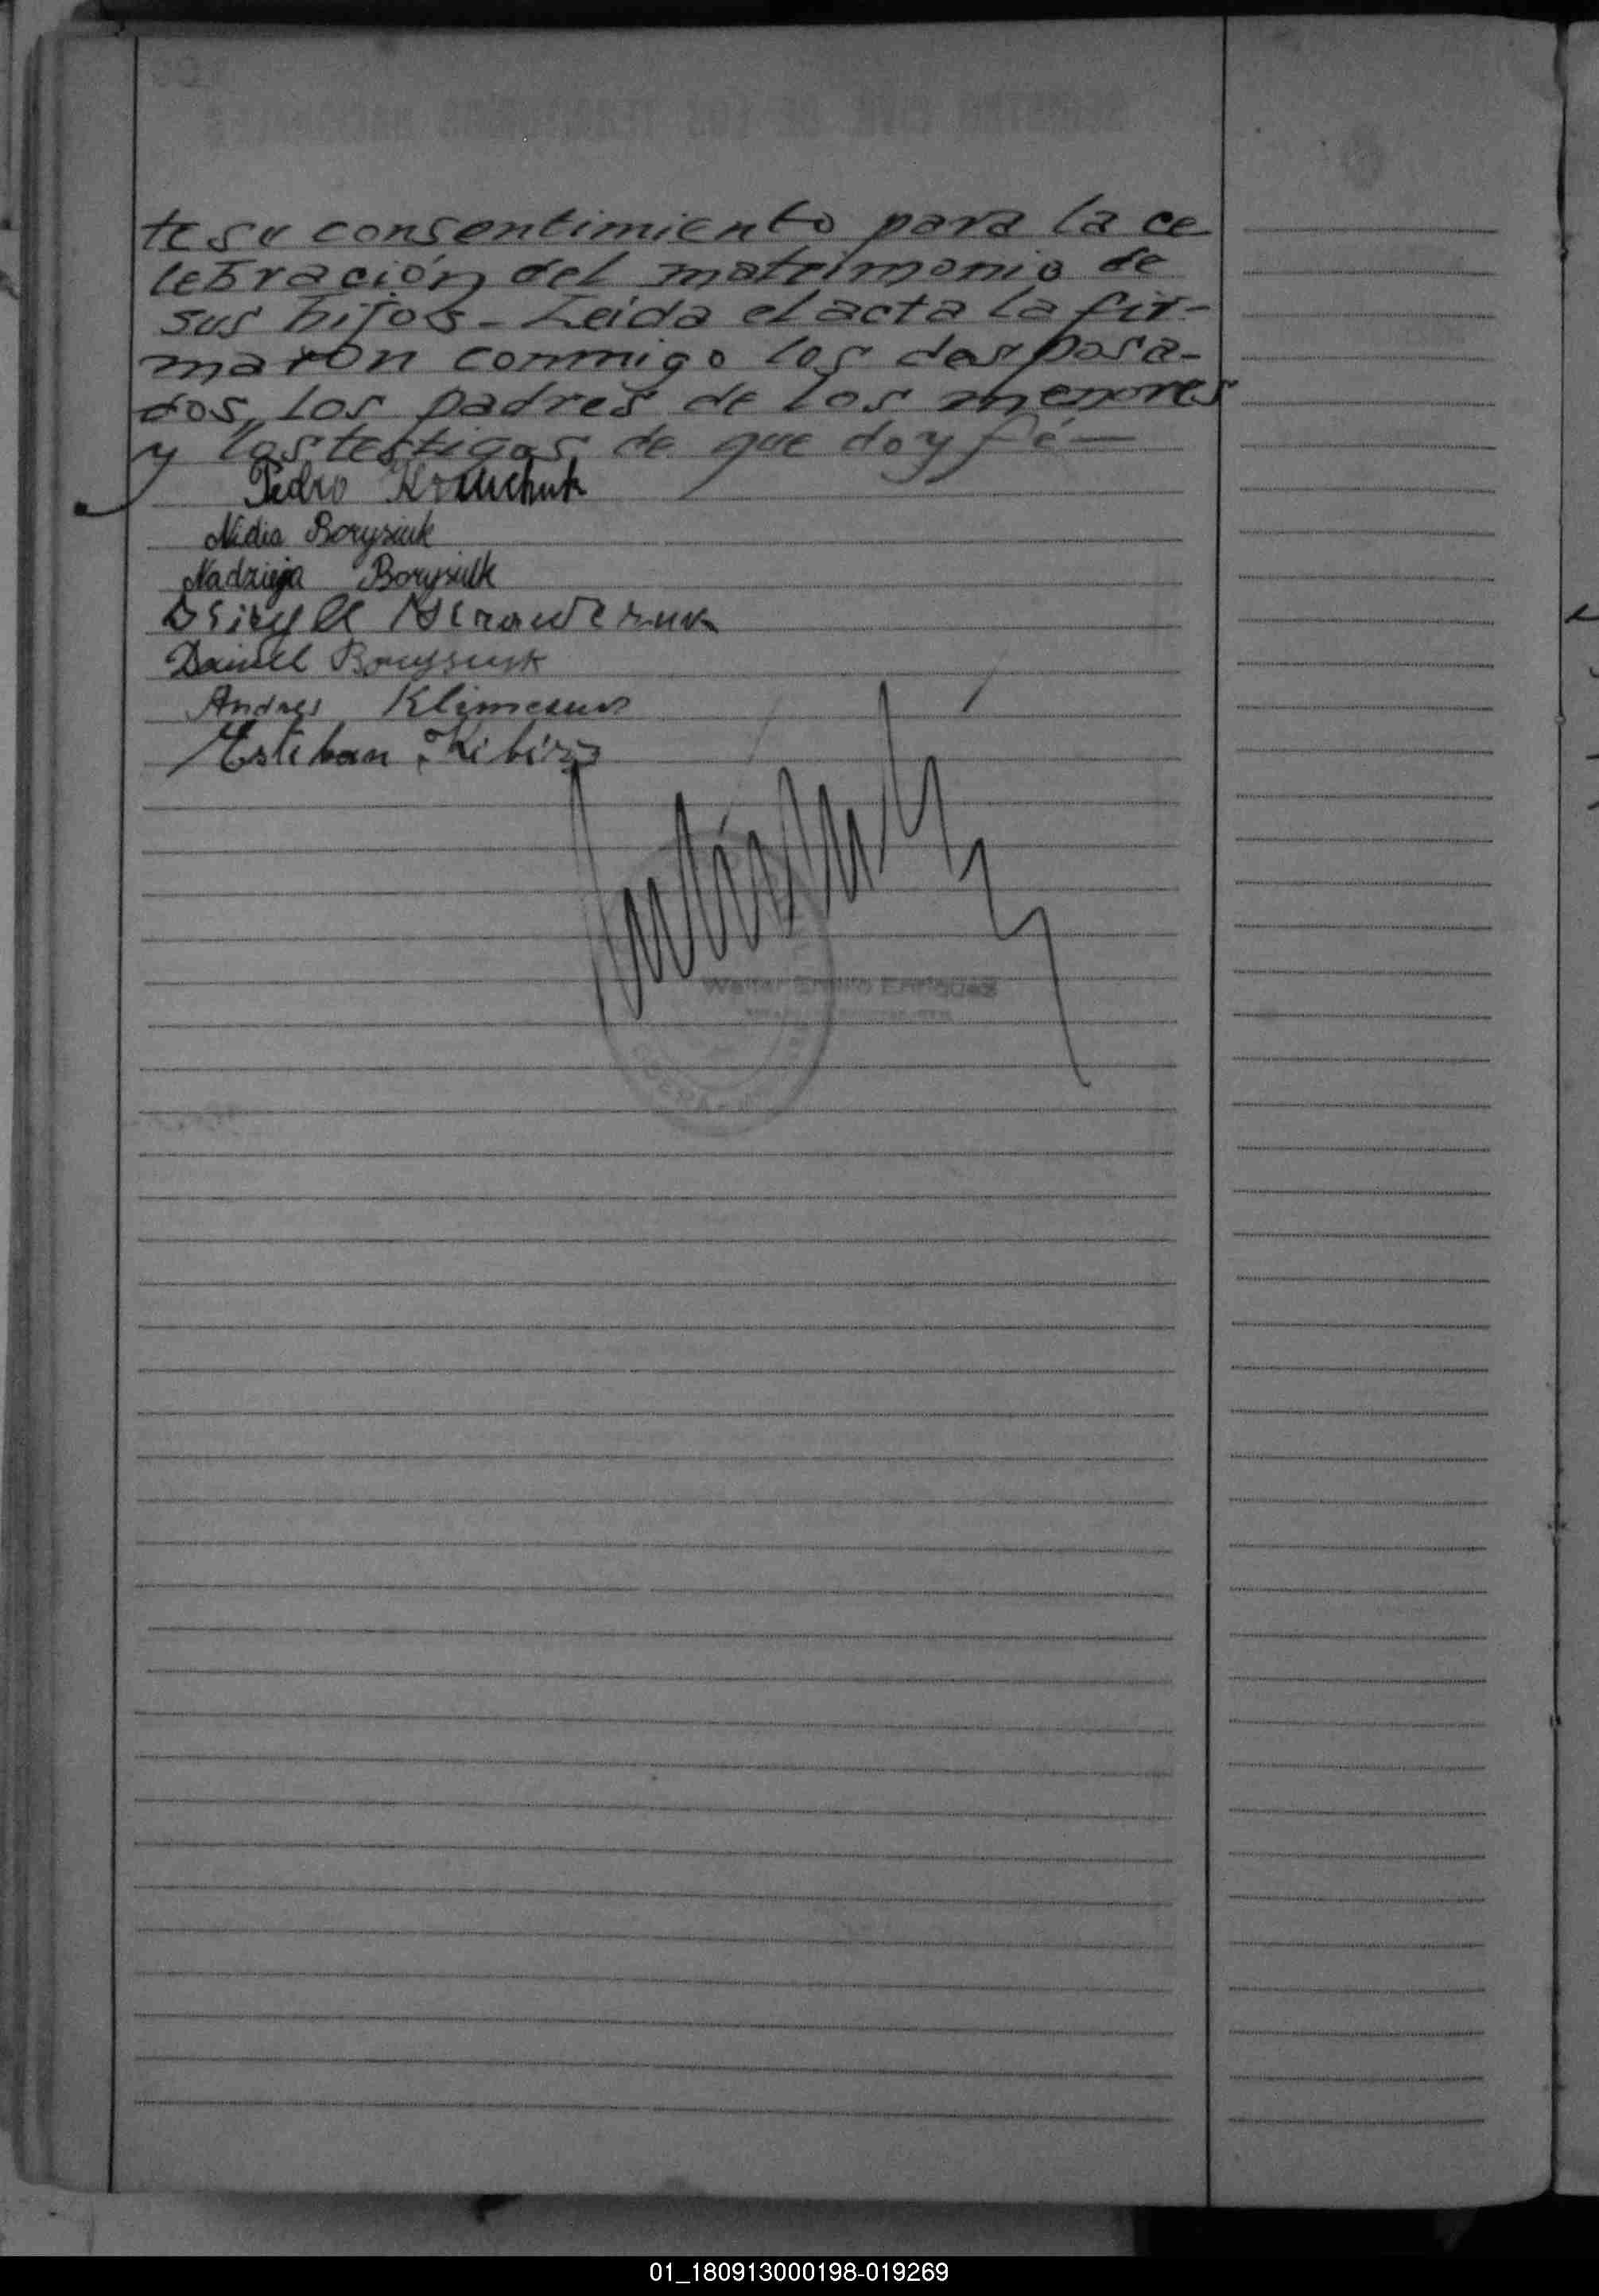 te su consentimiento para la ce
lebración del matrimonio de
sus hijos - Leida el acta la fir-
maron conmigo los desposa-
dos, los padres de los menores
y los testigos de que doy fé -
Pedro Krawchuk
Nidia Borysiuk
Nadzieja Borysiuk
Daniel Borysiuk
Andres
Esteban
Walter Emilio Enriquez
01_180913000198-019269